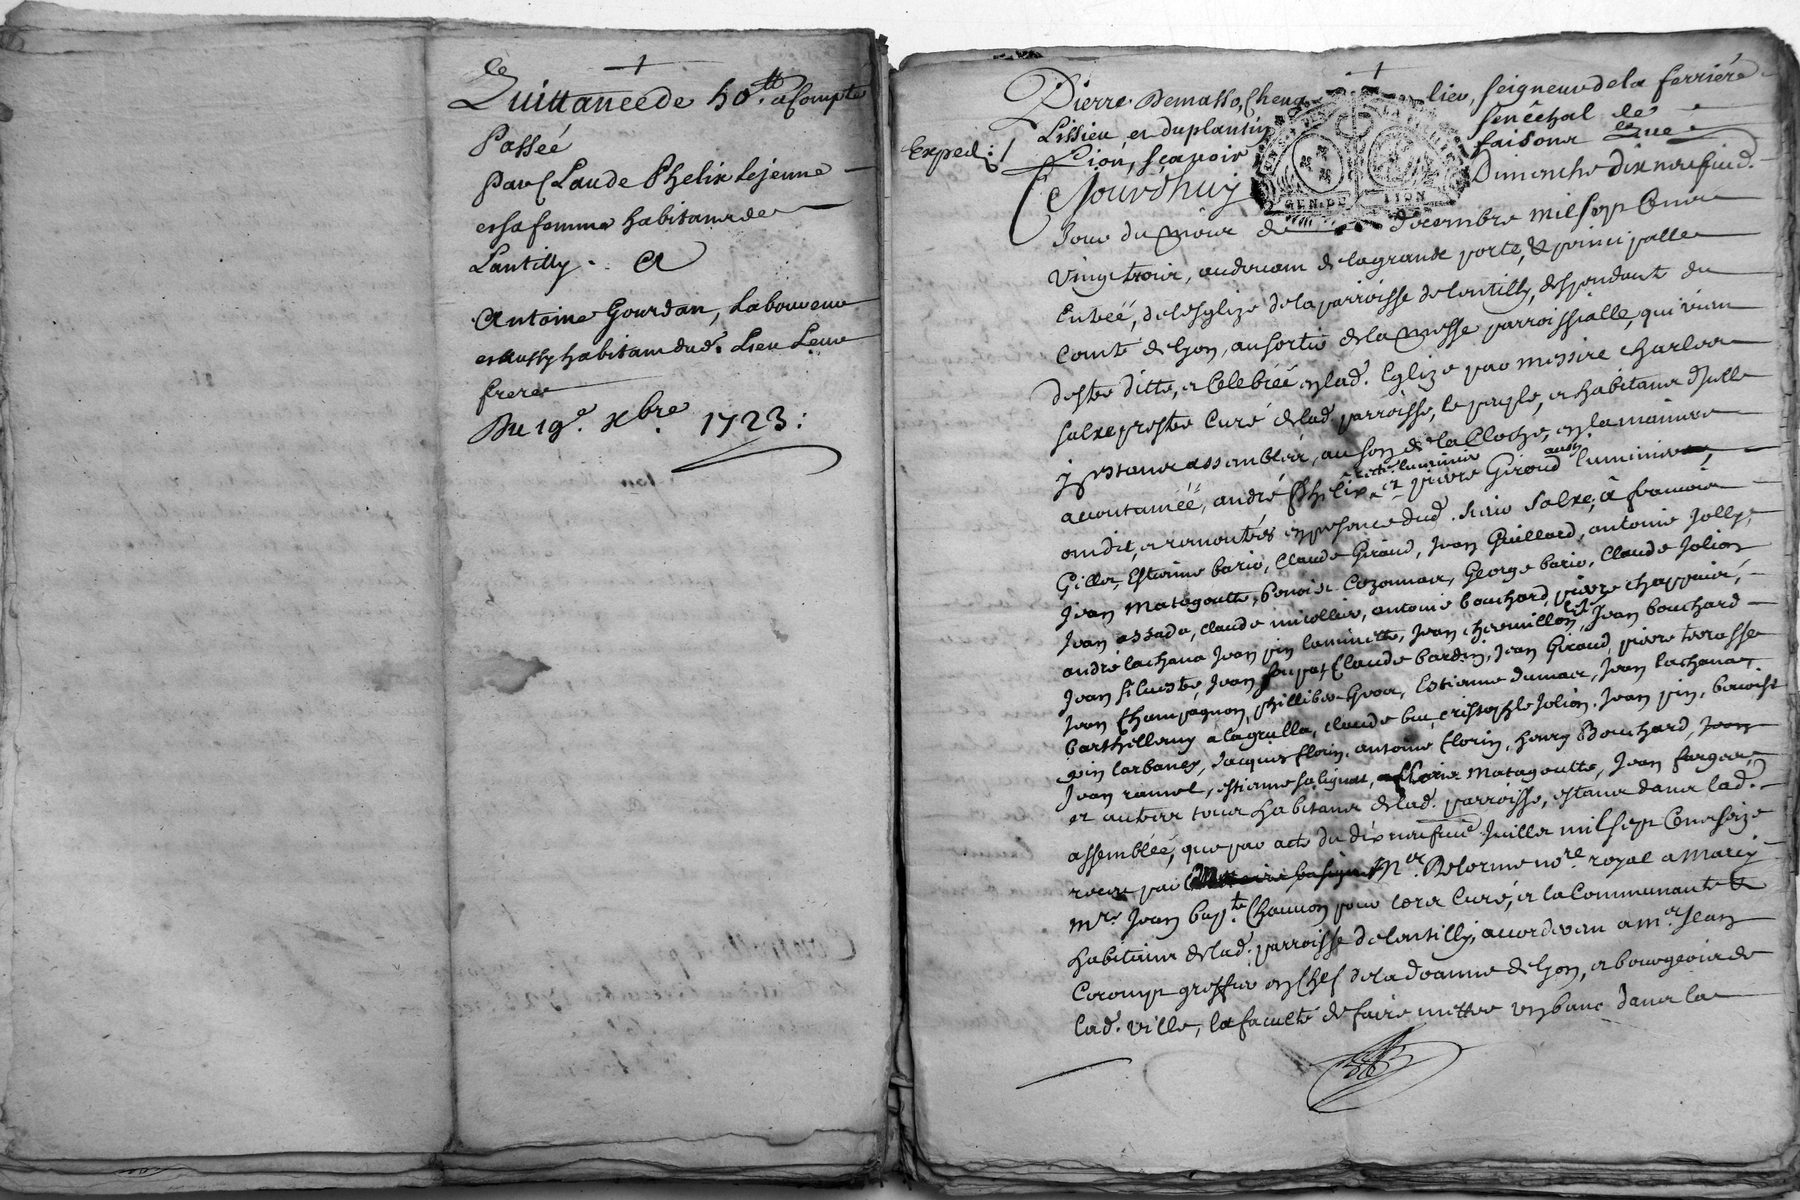 Quittance de 50.tt a Compte
Passée
par Claude Phelix Lejeune
et sa femme habitans de
Lantilly. A
Antoine Gourdan, Laboureur
et aussy habitant dud. Lieu Leur
frere
Du 19e. Xbre. 1723:
Pierre Demasso, Cheualier, seigneur de la ferriere
Lissieu et duplantin senéchal de
Exped:
Lion, sçavoir faisons que
Ce Jourdhuy Dimanche dix neufiud.
Jour du mois de decembre mil sept Cent
vingt trois, au deuant de la grande porte, & principalle
Entreé, de lesglize de la parroisse de lentilly, despendant du
Comté de Lyon, au sortir de la messe parroissialle, qui vient
destre ditte, et Celebreé en lad. Eglize par messire charles
Salxe prestre Curé de lad. parroisse, le peuple, et habitans dJcelle
y estans assemblés, au son de la Cloche, en la maniere
accoutumeé, andré Phelix et pierre Giroud luminiers,
ont dit, et remontrés en presence dud. sieur Salxe, à francois
Gillet, Estienne bario, Claude Giraud, Jean Guillard, antoine Jolly,
Jean Matagoutte, benoist Cozonnaix, George bario, Claude Jolion
Jean assada, claude micollier, antoine bouchard, pierre chappuis,
andré lachana Jean pin laminette, Jean chermillon, Jean bouchard
Jean siluestre, Jean Claude bardin, Jean Giraud, pierre terrasse
Jean Champagnon, phillibert Estienne dumas, Jean lachana,
barthellemy alagrulla, claude bu, cristophle Jolion, Jean pin, benoist
pin larbaney, Jacques florin, antoine florin, henry Bouchard, Jean
Jean ramel, estienne salignat, Matagoutte, Jean farges,
et autres tous habitans de lad. parroisse, estans dans lad.
assembleé, que par acte du dix neufiud Juillet mil sept Cent seize
receu par Mr. Delorme nore. royal a Marcy
mre. Jean Bapte. Chauuon pour lors Curé, et la Communauté &
habitans de lad. parroisse de lentilly, accorderent a mr. Jean
Coromp greffier en Chef de la doanne de Lyon, et bourgeois de
lad. ville, la faculté de faire mettre un banc dans la